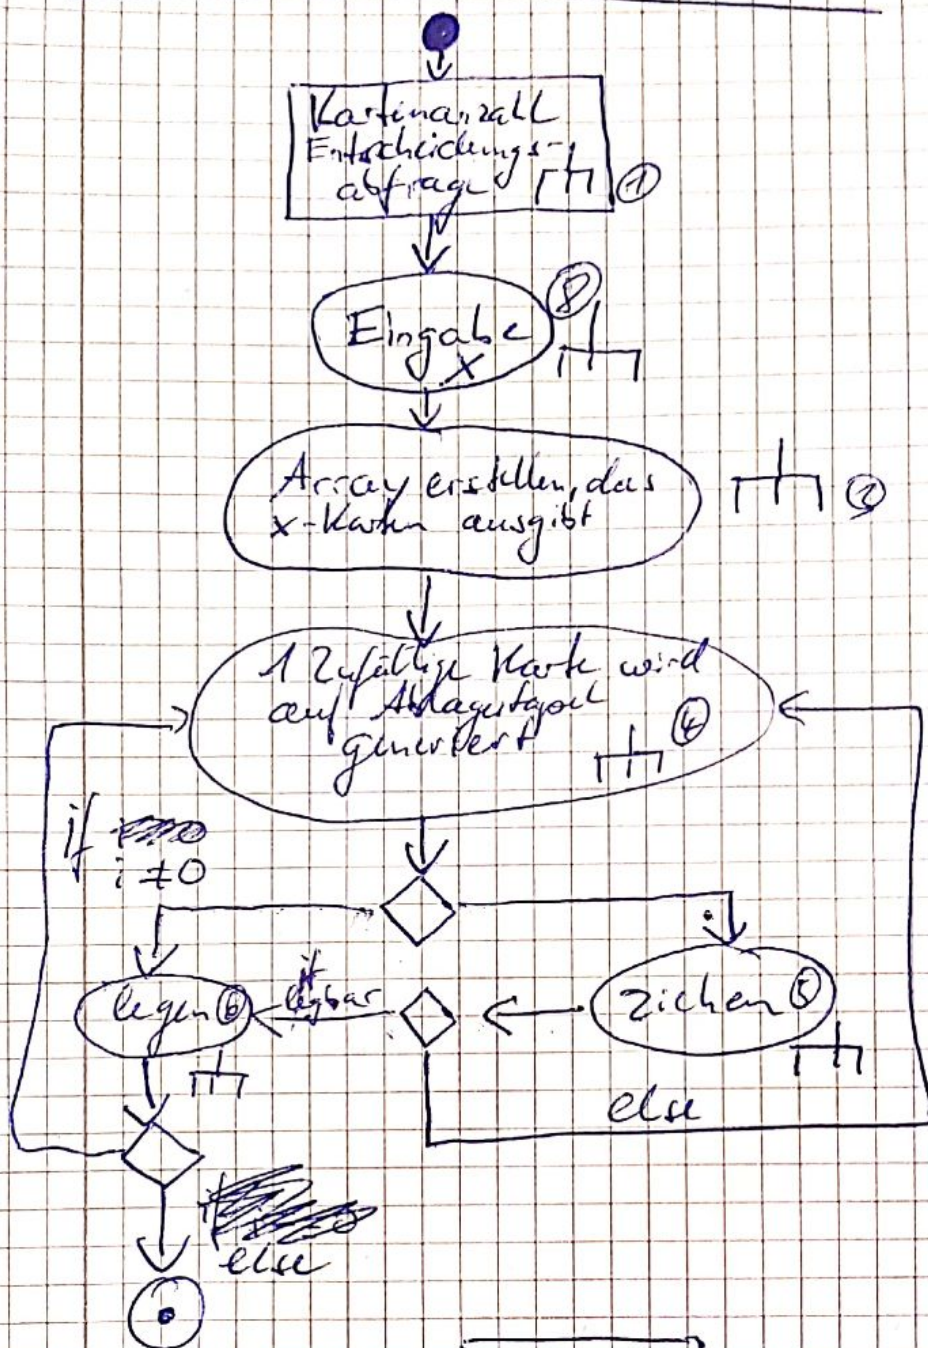 Kartenanzall
Entscheidungs-
abfrage
1
Eingabe
x
8
Array erstellen, das
x-Karten ausgibt
2
1 Zufällige Karte wird
auf Ablagestapel
generiert
4
if
i ≠ 0
legen 6
if
legbar
ziehen 5
else
else